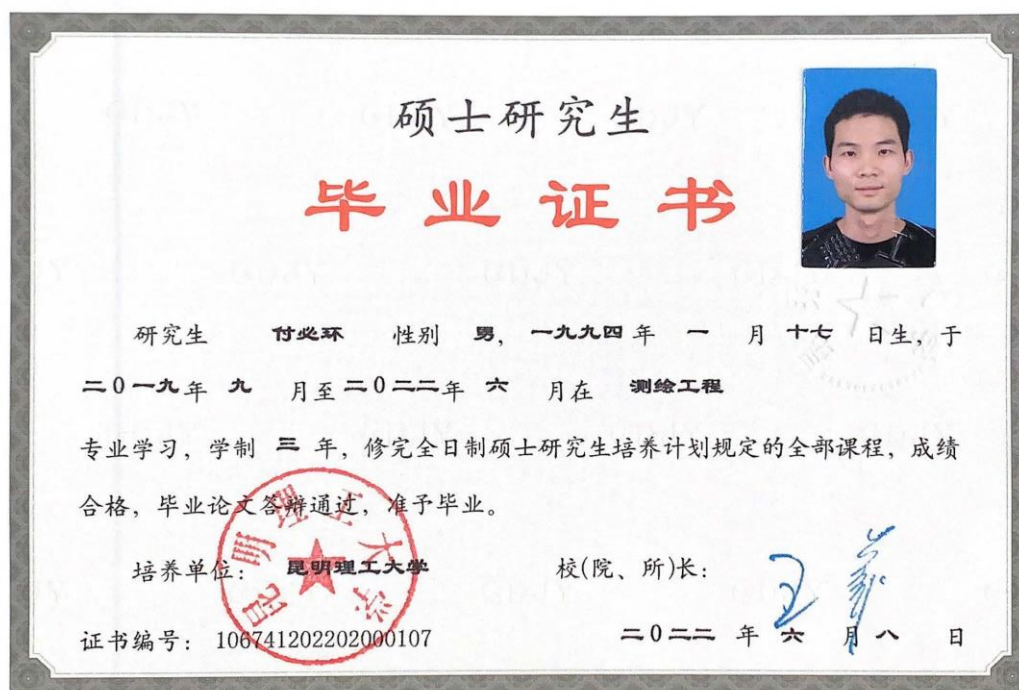 硕士研究生
毕业证书
研究生 付必环 性别 男, 一九九四 年 一 月 十七 日生, 于
二0一九 年 九 月至 二0二二 年 六 月在 测绘工程
专业学习, 学制 三 年, 修完全日制硕士研究生培养计划规定的全部课程, 成绩
合格, 毕业论文答辩通过, 准予毕业。
培养单位: 昆明理工大学 校(院、所)长:
昆明理工大学
证书编号: 106741202202000107 二0二二 年 六 月 八 日